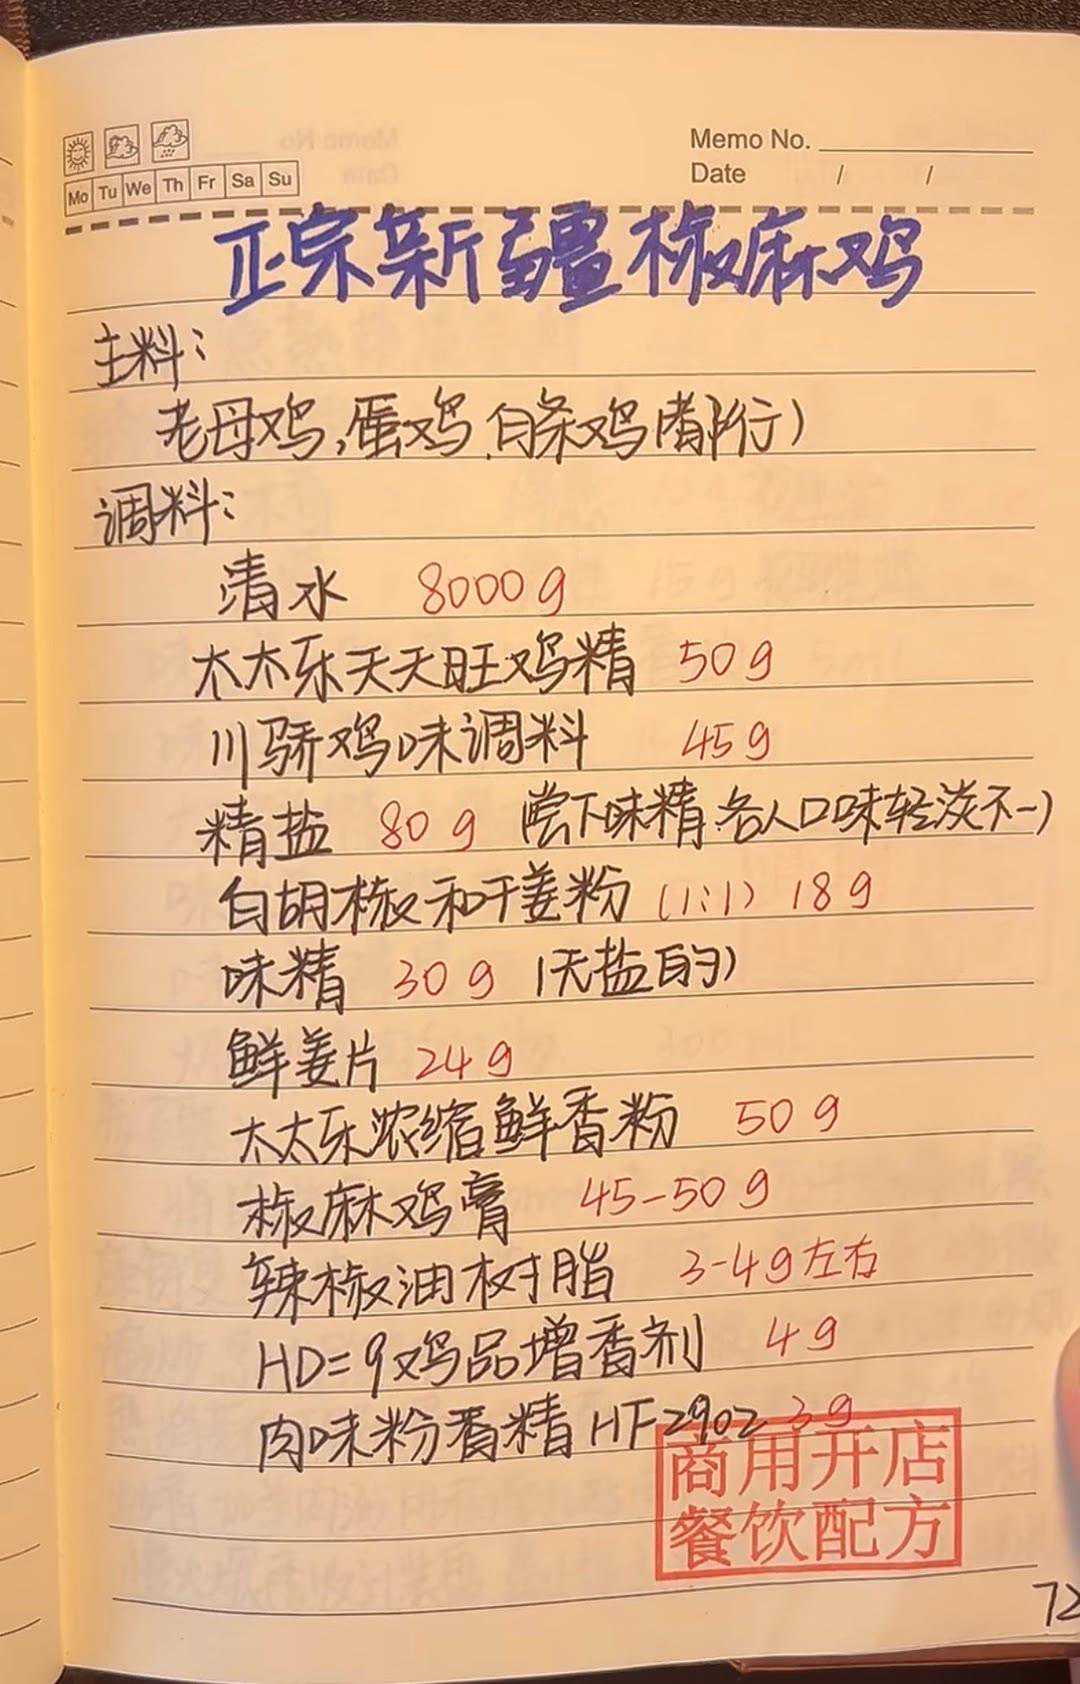 Memo No.
Mo Tu We Th Fr Sa Su
Date / /
正宗新疆椒麻鸡
主料:
老母鸡,蛋鸡.白条鸡(都行)
调料:
清水 8000g
太太乐天天旺鸡精 50g
川骄鸡味调料 45g
精盐 80g (尝下味精.各人口味轻淡不一)
白胡椒和干姜粉 (1:1) 18g
味精 30g (无盐的)
鲜姜片 24g
太太乐浓缩鲜香粉 50g
椒麻鸡膏 45-50g
辣椒油树脂 3-4g左右
HD=9鸡品增香剂 4g
肉味粉香精 HF2902 3g
商用开店
餐饮配方
72